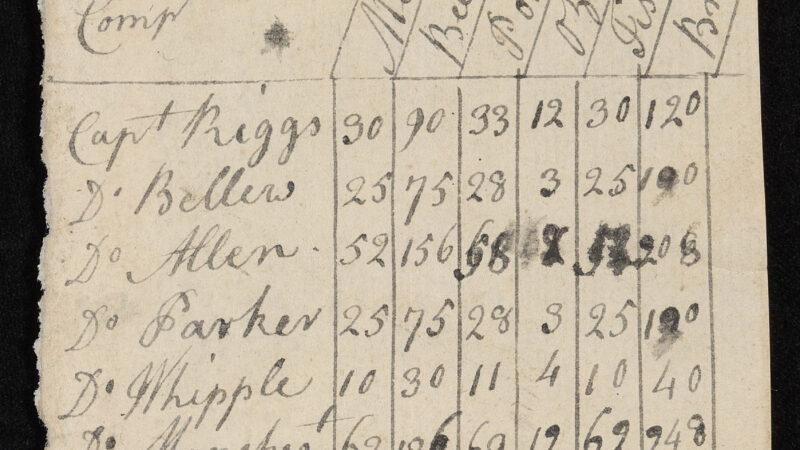 Comp
Capt Riggs 30 90 33 12 30 120
Do Bellew 25 75 28 3 25 100
Do Allen 52 156 58 208
Do Parker 25 75 28 3 25 100
Do Whipple 10 30 11 4 10 40
Do 62 186 69 12 62 248